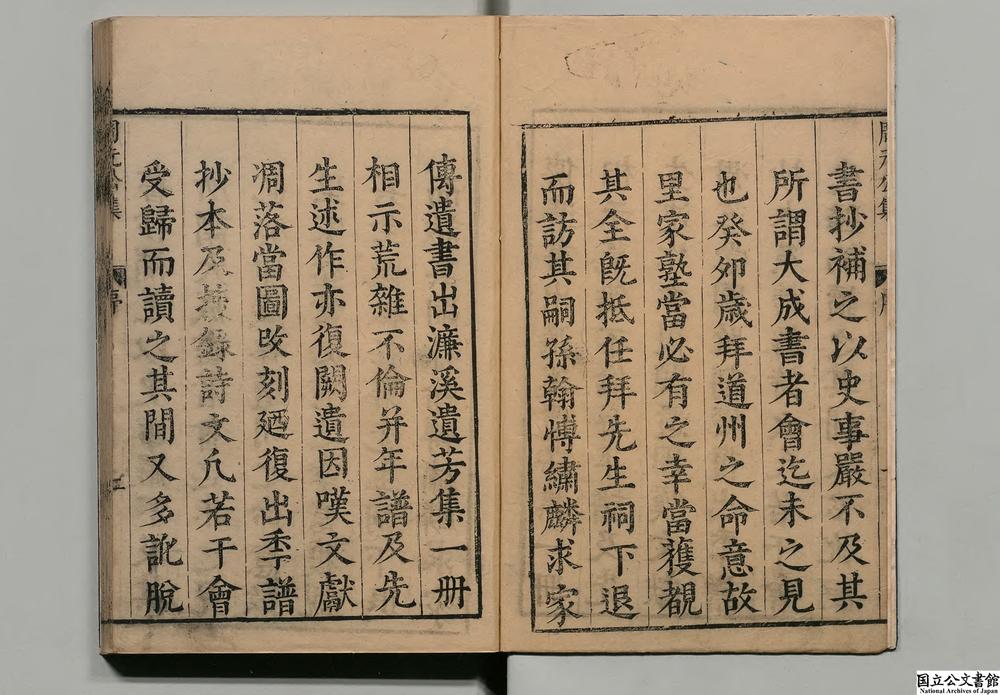 書抄補之以史事嚴不及其
所謂大成書者會迄未之見
也癸夘歳拜道州之命意故
里家塾當必有之幸當獲覩
其全旣抵任拜先生祠下退
而訪其嗣孫翰愽繡麟求家
傳遺書出濂溪遺芳集一册
相示荒雜不倫并年譜及先
生述作亦復闕遺因嘆文獻
凋落當圖改刻廼復出秊譜
抄本及蒐録詩文凢若干會
受歸而讀之其間又多訛脫
周元公集
序
国立公文書館
National Archives of Japan